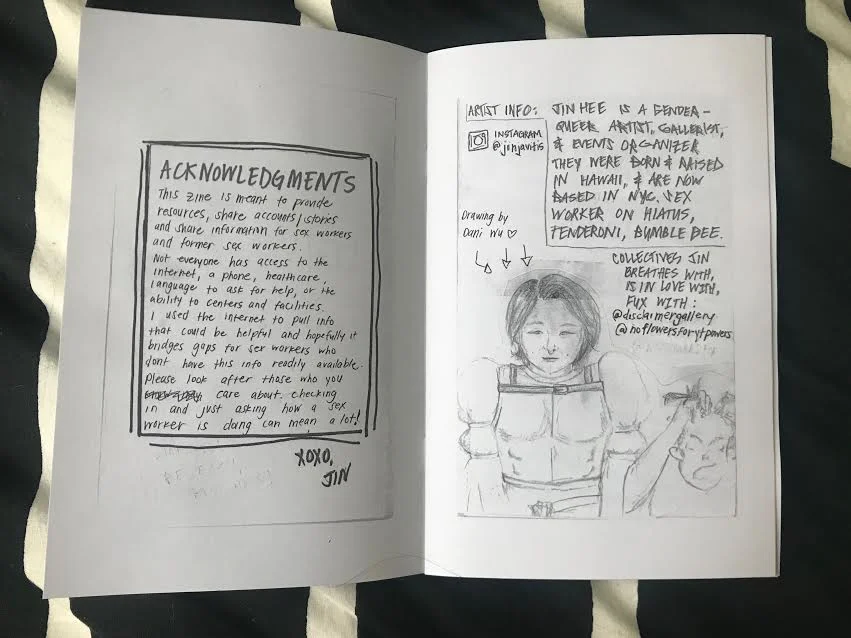 ACKNOWLEDGMENTS
This zine is meant to provide
resources, share accounts/stories
and share information for sex workers
and former sex workers.
Not everyone has access to the
internet, a phone, healthcare,
language to ask for help, or the
ability to centers and facilities.
I used the internet to pull info
that could be helpful and hopefully it
bridges gaps for sex workers who
dont have this info readily available.
Please look after those who you
care about. Checking
in and just asking how a sex
worker is doing can mean a lot!
XOXO,
JIN
ARTIST INFO:
INSTAGRAM
@jinjavitis
JIN HEE IS A GENDER-
QUEER ARTIST, GALLERIST,
& EVENTS ORGANIZER
THEY WERE BORN & RAISED
IN HAWAII, & ARE NOW
BASED IN NYC. SEX
WORKER ON HIATUS,
TENDERONI, BUMBLE BEE.
Drawing by
Dani Wu ♡
COLLECTIVES JIN
BREATHES WITH,
IS IN LOVE WITH,
FUX WITH:
@disclaimergallery
@noflowersforytpowers